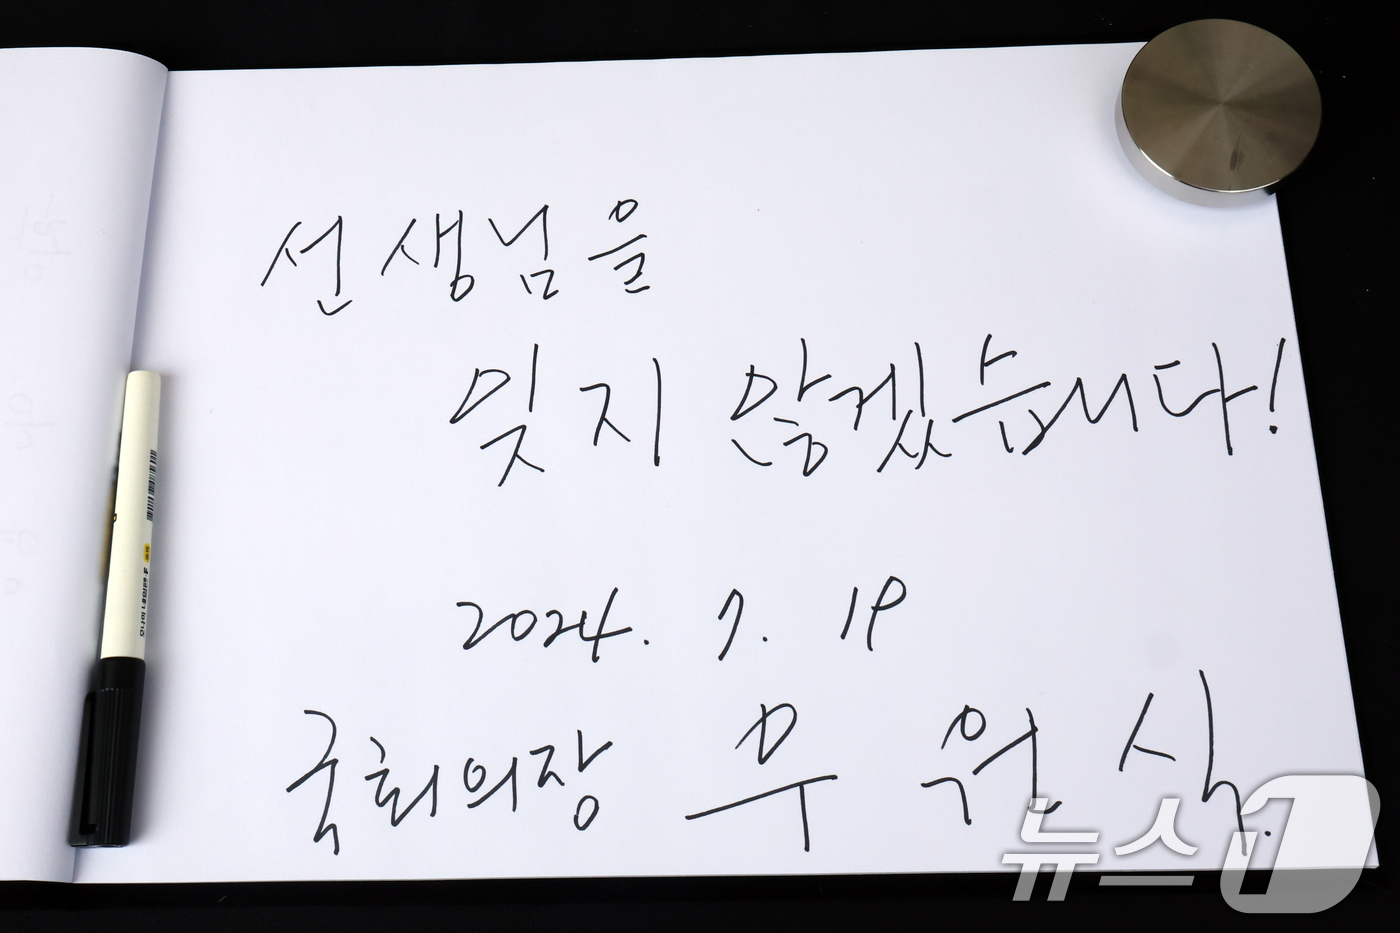 선생님을
잊지 않겠습니다!
2024. 7. 19
국회의장 우 원 식.
뉴스1